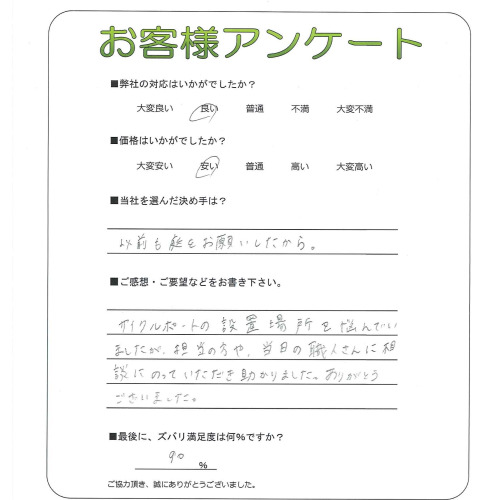 お客様アンケート
■弊社の対応はいかがでしたか？
大変良い 良い 普通 不満 大変不満
■価格はいかがでしたか？
大変安い 安い 普通 高い 大変高い
■当社を選んだ決め手は？
以前も庭をお願いしたから。
■ご感想・ご要望などをお書き下さい。
サイクルポートの設置場所を悩んでい
ましたが、担当の方や、当日の職人さんに相
談にのっていただき助かりました。ありがとう
ございました。
■最後に、ズバリ満足度は何%ですか？
90 %
ご協力頂き、誠にありがとうございました。